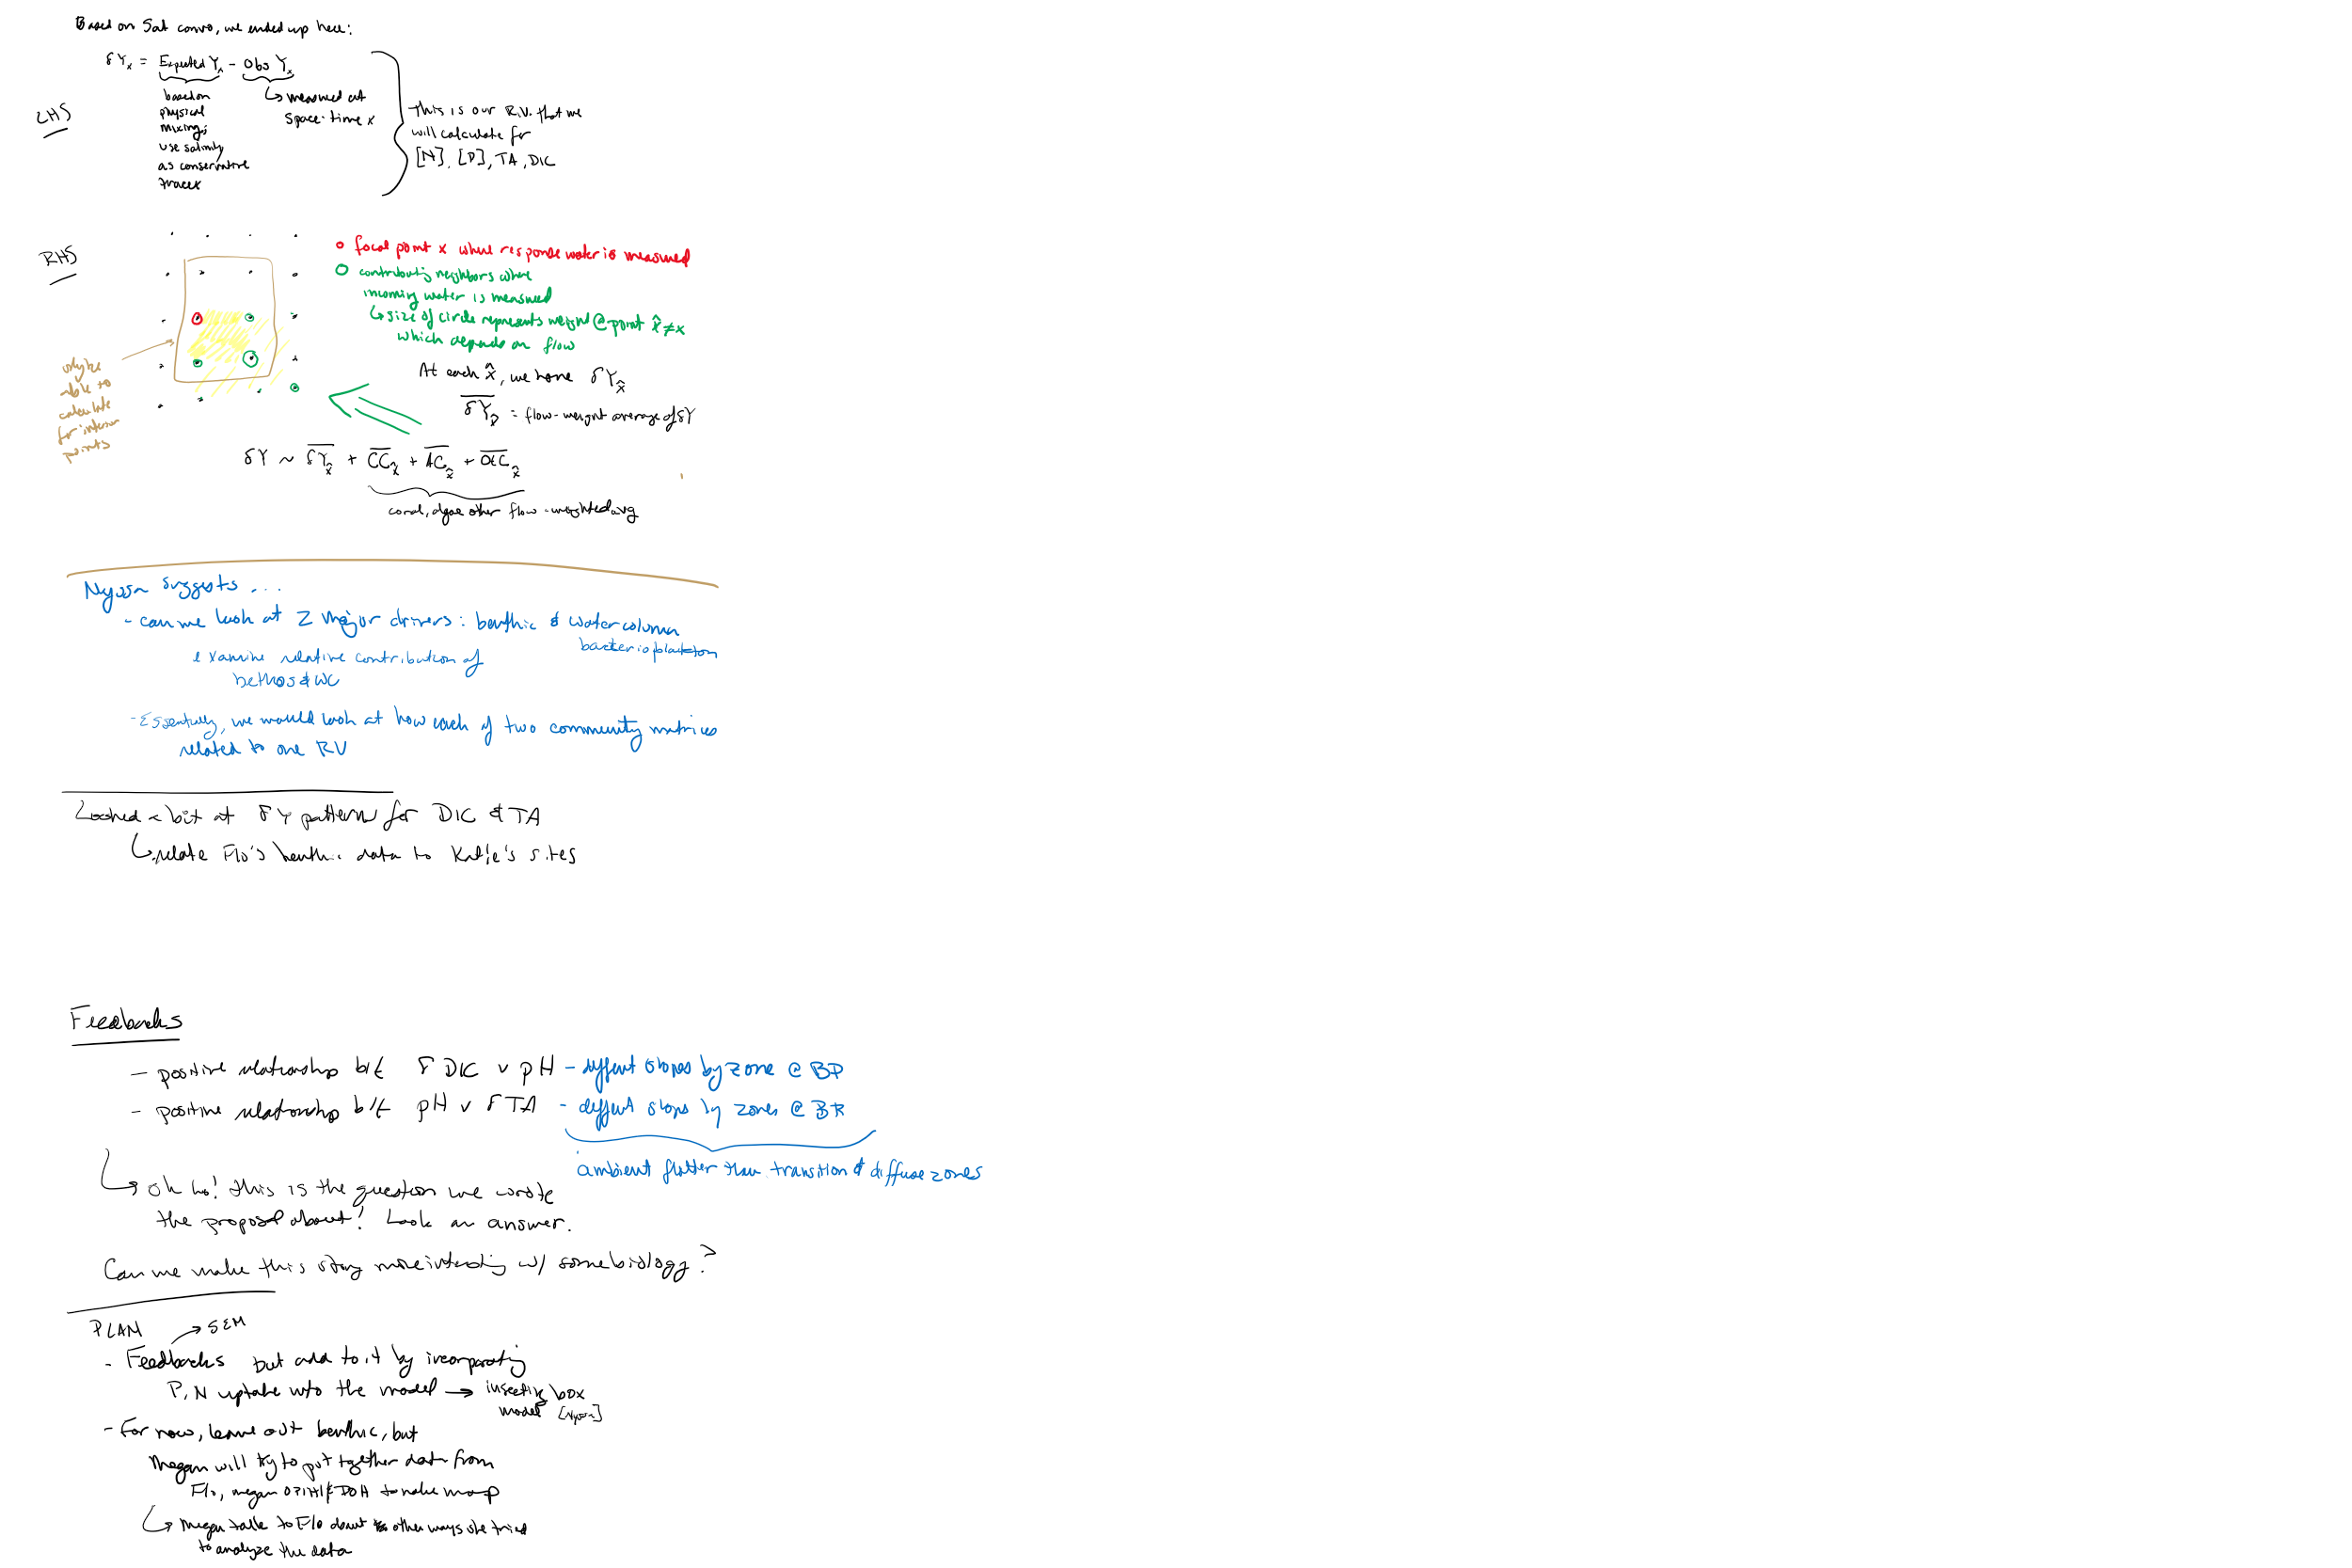 Based on Sat convo, we ended up here:
LHS
δYₓ = Expected Yₓ - Obs Yₓ
based on
physical
mixing;
use salinity
as conservative
tracer
↳ measured at
space-time x
This is our R.V. that we
will calculate for
[N], [P], TA, DIC
RHS
o focal point x where response water is measured
O contributing neighbors where
incoming water is measured
↳ size of circle represents weight @ point x̂ ≠ x
which depends on flow
only be
able to
calculate
for interior
points
At each x̂, we have δY_x̂
= flow-weight average of δY
δY ~ δY_x̂ + CC_x̂ + AC_x̂ + OtC_x̂
coral, algae other flow-weighted avg
Nyssa suggests ...
- can we look at 2 major drivers: benthic & water column
bacterioplankton
examine relative contribution of
bethos & WC
- Essentially, we would look at how each of two community matrices
related to one RV
Looked a bit at δY patterns for DIC & TA
↳ relate Flo's benthic data to Katie's sites
Feedbacks
- positive relationship b/t δDIC v pH - diffent slopes by zone @ BP
- positive relationship b/t pH v δTA - diffent slops by zones @ BP
ambient flatter than transition & diffuse zones
↳ oh ho! this is the question we wrote
the proposal about! Look an answer.
Can we make this story more interesting w/ some biology?
PLAN
→ SEM
- Feedbacks but add to it by incorporating
P, N uptake into the model → insecting box
model [Nyssa]
- For now, leave out benthic, but
Megan will try to put together data from
Flo, megan & DOH to make map
↳ Megan talk to Flo about other ways she tried
to analyze the data